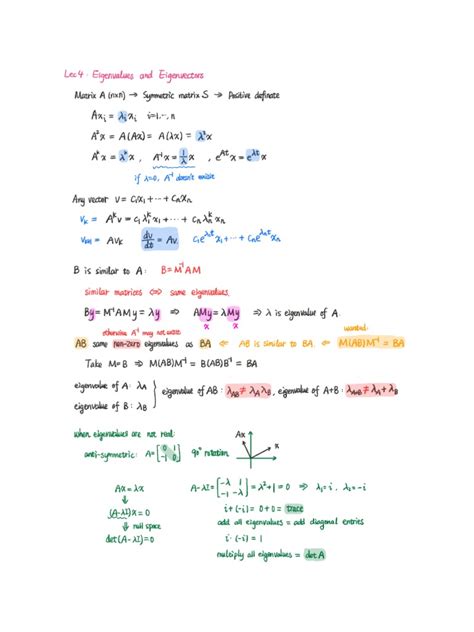 Lec 4: Eigenvalues and Eigenvectors
Matrix A (n×n) → Symmetric matrix S → Positive definate
Axᵢ = λᵢxᵢ i=1,…,n
A²x = A(Ax) = A(λx) = λ²x
Aᵏx = λᵏx , A⁻¹x = 1/λ x , e^{At}x = e^{λt}x
if λ=0, A⁻¹ doesn't exist
Any vector v = c₁x₁ + ⋯ + cₙxₙ
vₖ = Aᵏv = c₁λ₁ᵏx₁ + ⋯ + cₙλₙᵏxₙ
= Avₖ dv/dt = Av, c₁e^{λ₁t}x₁ + ⋯ + cₙe^{λₙt}xₙ
B is similar to A: B = M⁻¹AM
similar matrices ⇔ same eigenvalues.
By = M⁻¹AMy = λy ⇒ AMy = λMy ⇒ λ is eigenvalue of A.
x x
otherwise A⁻¹ may not exist wanted:
AB same non-zero eigenvalues as BA ⇐ AB is similar to BA ⇐ M(AB)M⁻¹ = BA
Take M=B ⇒ M(AB)M⁻¹ = B(AB)B⁻¹ = BA
eigenvalue of A: λ_A
eigenvalue of B: λ_B } eigenvalue of AB: λ_AB ≠ λ_Aλ_B, eigenvalue of A+B: λ_{A+B} ≠ λ_A+λ_B
when eigenvalues are not real:
anti-symmetric: A = [0 1; -1 0] 90° rotation. Ax x
Ax = λx A-λI = [-λ 1; -1 -λ] = λ²+1 = 0 ⇒ λ₁=i, λ₂=-i
(A-λI)x = 0 i+(-i) = 0+0 = trace
⇓ null space add all eigenvalues = add diagonal entries
det(A-λI)=0 i·(-i) = 1
multiply all eigenvalues = det A